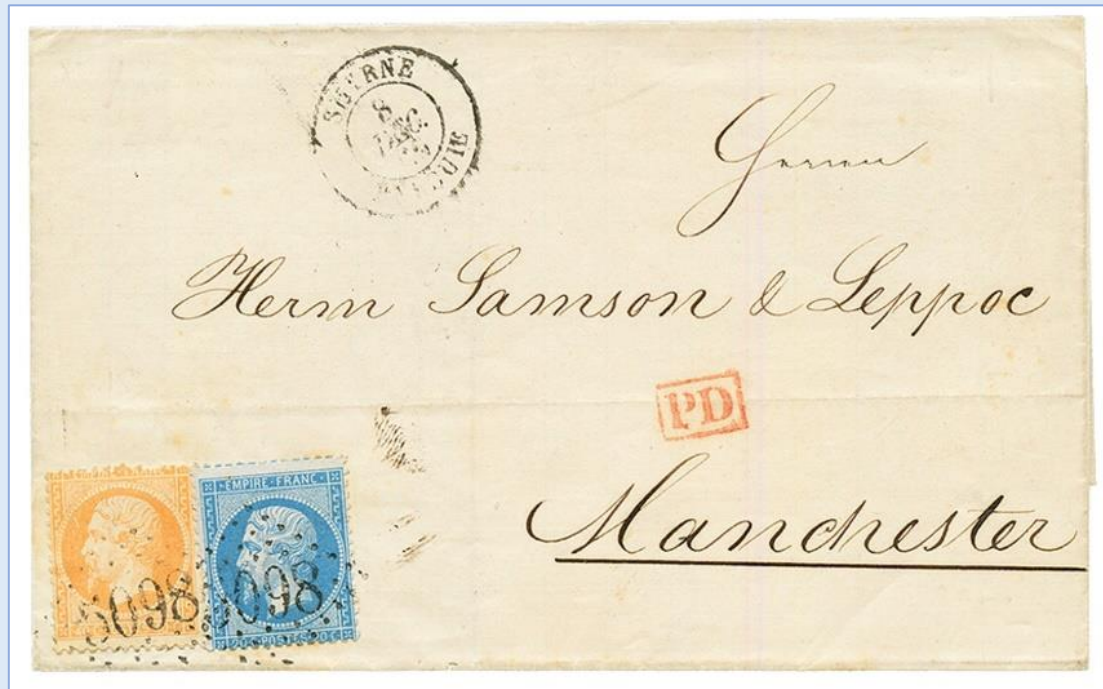 SMYRNE
8
TURQUIE
Herren
Herrn Samson & Leppoc
PD
Manchester
EMPIRE FRANC
5098 5098
20 C POSTES 20 C